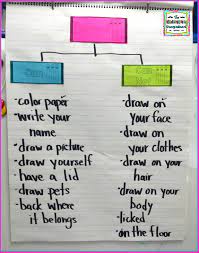 Can
- color paper
- write your
name
- draw a picture
- draw yourself
- have a lid
- draw pets
- back where
it belongs
- draw on
your face
- draw on
your clothes
- draw on your
hair
- draw on your
body
- licked
- on the floor